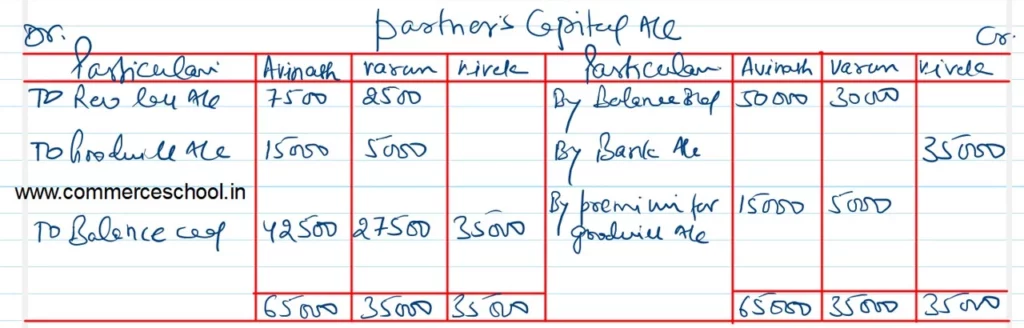 Partner's Capital A/c
Dr. Cr.
Particulars Avinash Varun Vivek Particulars Avinash Varun Vivek
To Rev loss A/c 7500 2500 By Balance b/d 50000 30000
To Goodwill A/c 15000 5000 By Bank A/c 35000
www.commerceschool.in
To Balance c/d 42500 27500 35000 By premium for goodwill A/c 15000 5000
65000 35000 35000 65000 35000 35000